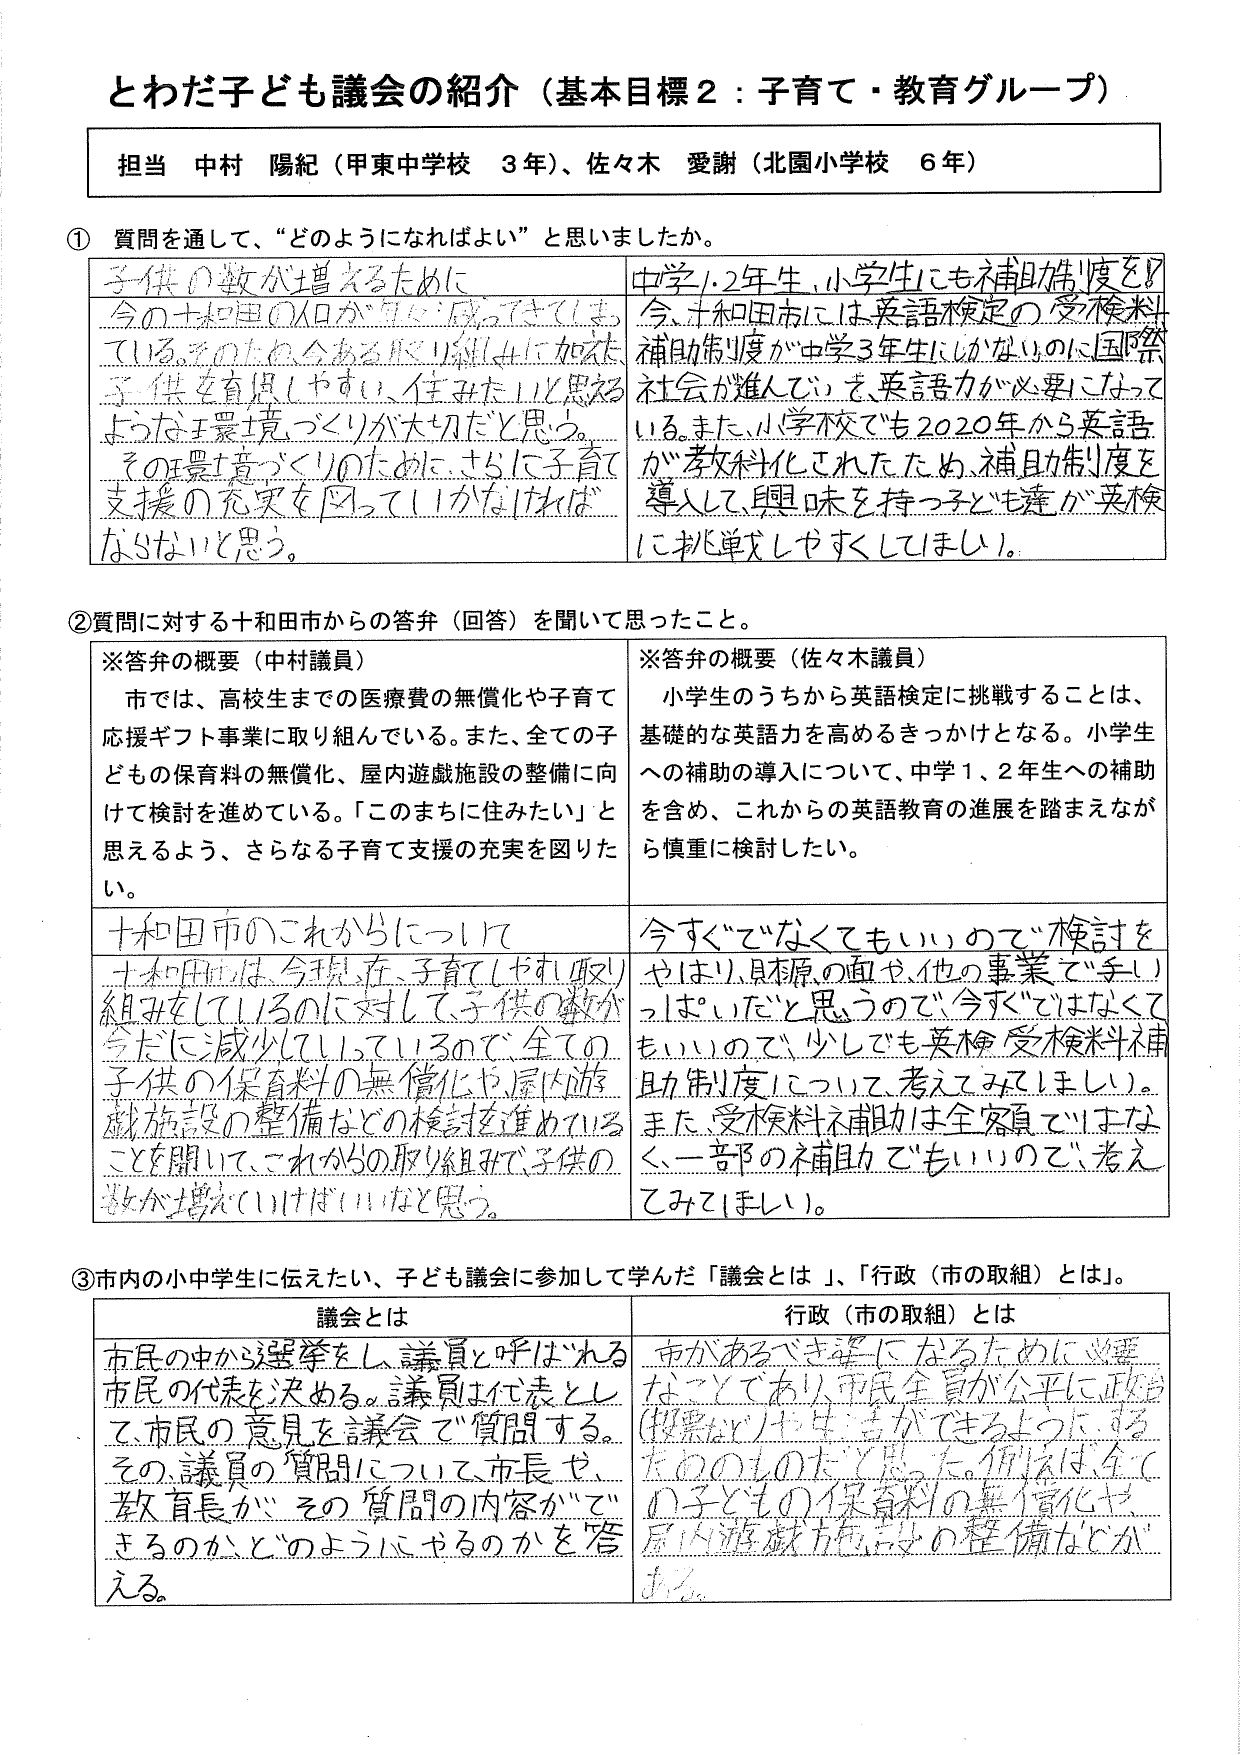 とわだ子ども議会の紹介（基本目標２：子育て・教育グループ）
担当　中村　陽紀（甲東中学校　３年）、佐々木　愛謝（北園小学校　６年）
①　質問を通して、“どのようになればよい”と思いましたか。
子供の数が増えるために
今の十和田の人口が年々減ってきてしまっ
ている。そのため、今ある取り組みに加えた
子供を育児しやすい、住みたいと思える
ような環境づくりが大切だと思う。
その環境づくりのために、さらに子育て
支援の充実を図っていかなければ
ならないと思う。
中学1.2年生、小学生にも補助制度を!!
今、十和田市には英語検定の受検料
補助制度が中学3年生にしかないのに国際
社会が進んでいき、英語力が必要になって
いる。また、小学校でも2020年から英語
が教科化されたため、補助制度を
導入して、興味を持つ子ども達が英検
に挑戦しやすくしてほしい。
②質問に対する十和田市からの答弁（回答）を聞いて思ったこと。
※答弁の概要（中村議員）
市では、高校生までの医療費の無償化や子育て
応援ギフト事業に取り組んでいる。また、全ての子
どもの保育料の無償化、屋内遊戯施設の整備に向
けて検討を進めている。「このまちに住みたい」と
思えるよう、さらなる子育て支援の充実を図りた
い。
※答弁の概要（佐々木議員）
小学生のうちから英語検定に挑戦することは、
基礎的な英語力を高めるきっかけとなる。小学生
への補助の導入について、中学１、２年生への補助
を含め、これからの英語教育の進展を踏まえなが
ら慎重に検討したい。
十和田市のこれからについて
十和田市は、今現在、子育てしやすい取り
組みをしているのに対して、子供の数が
今だに減少していっているので、全ての
子供の保育料の無償化や、屋内遊
戯施設の整備などの検討を進めている
ことを聞いて、これからの取り組みで、子供の
数が増えていけばいいなと思う。
今すぐでなくてもいいので検討を
やはり、財源の面や、他の事業で手い
っぱいだと思うので、今すぐではなくて
もいいので、少しでも英検受検料補
助制度について、考えてみてほしい。
また、受検料補助は全額ではな
く、一部の補助でもいいので、考え
てみてほしい。
③市内の小中学生に伝えたい、子ども議会に参加して学んだ「議会とは 」、「行政（市の取組）とは」。
議会とは
市民の中から選挙をし、議員と呼ばれる
市民の代表を決める。議員は代表とし
て、市民の意見を議会で質問する。
その、議員の質問について、市長や、
教育長が、その質問の内容がで
きるのか、どのようにやるのかを答
える。
行政（市の取組）とは
市があるべき姿になるために必要
なことであり、市民全員が公平に、政治
(投票など)や生活ができるように、する
たののものだと思った。例えば、全て
の子どもの保育料の無償化や、
屋内遊戯施設の整備などが
ある。